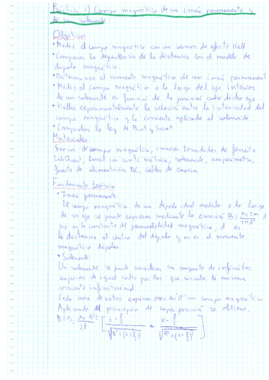 Práctica 9: Campo magnético de un imán permanente y
de un solenoide
Objetivo
• Medir el campo magnético con un sensor de efecto Hall
• Comparar la dependencia de la distancia con el modelo de
dipolo magnético
• Determinar el momento magnético de un imán permanente
• Medir el campo magnético a lo largo del eje
de un solenoide en función de la posición sobre dicho eje
• Hallar experimentalmente la relación entre la intensidad del
campo magnético y la corriente aplicada al solenoide
• Comprobar la ley de Biot y Savart
Materiales
Sensor de campo magnético, imanes de ferrita
carril con cinta métrica, solenoide, amperímetro,
fuente de alimentación DC, cables de conexión
Fundamento teórico
• Imán permanente
El campo magnético de un dipolo ideal medido a lo largo
de un eje se puede expresar mediante la ecuación
μ₀ es la constante de permeabilidad magnética, d es
la distancia al centro del dipolo y m es el momento
magnético dipolar
• Solenoide
Un solenoide se puede considerar un conjunto de infinitas
espiras de igual radio por las que circula la misma
corriente infinitesimal
Cada una de estas espiras crea un campo magnético
Aplicando el principio de superposición se obtiene,